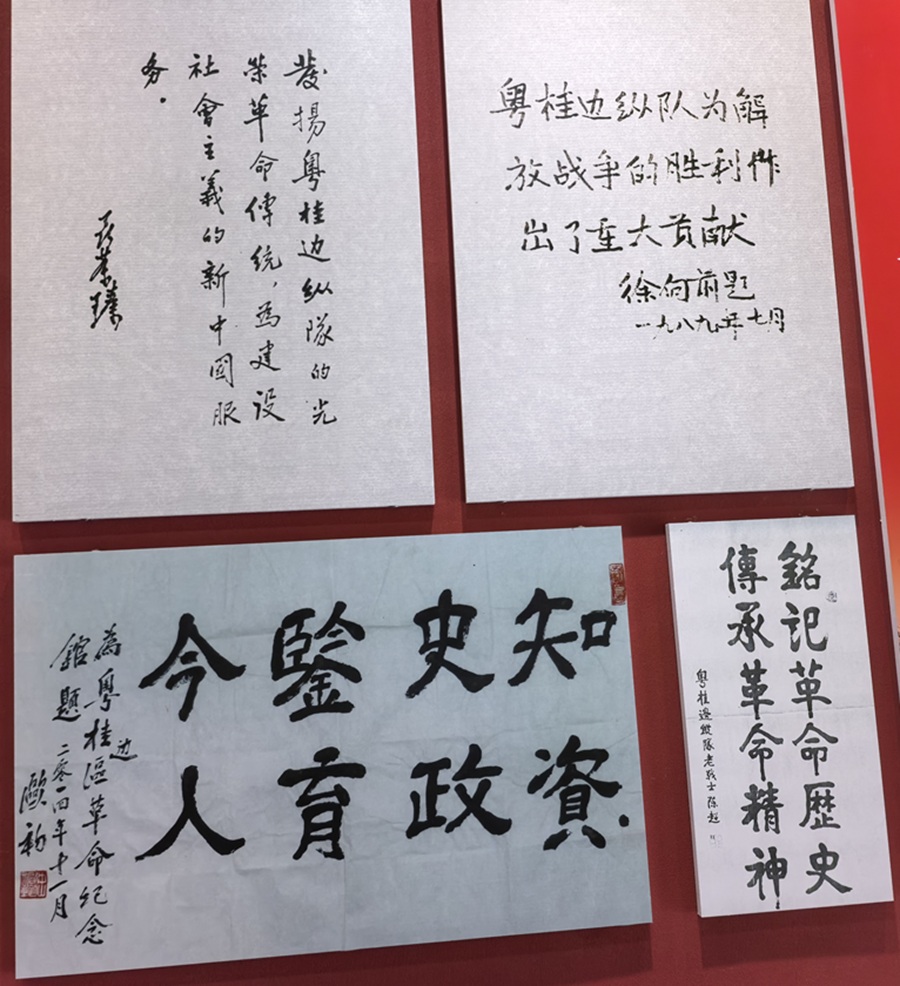 發揚粤桂边纵隊的光
荣革命傳统，為建设
社會主義的新中國服
务。
聂荣臻
粤桂边纵队为解
放战争的胜利作
出了重大贡献
徐向前题
一九八九年七月
知史鑒今
資政育人
為粤桂边區革命纪念
館題 二零一四年十一月
歐初
銘記革命歷史
傳承革命精神
粤桂邊縱隊老战士 陈超